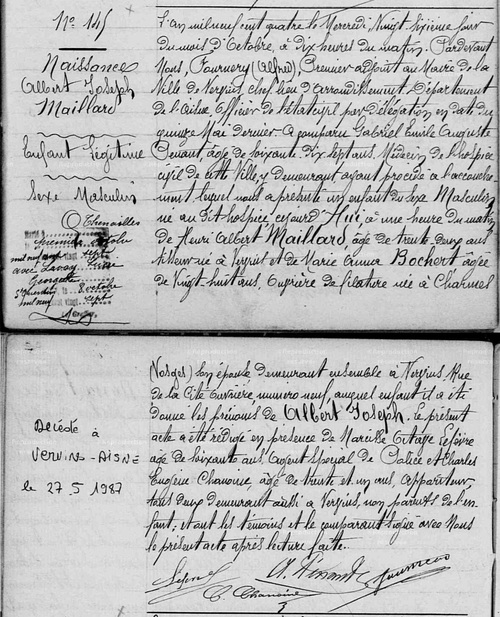 N° 145
Naissance
Albert Joseph
Maillard
Enfant légitime
Sexe Masculin
L'an mil neuf cent quatre le Mercredi Vingt Sixième jour
du mois d'Octobre, à dix heures du matin. Pardevant
Nous, (Alfred), Premier adjoint au Maire de la
Ville de Vervins, chef lieu d'arrondissement, Département
de l'Aisne, Officier de l'état civil par délégation en date du
quinze Mai dernier. A comparu Gabriel Emile Auguste
Penant, âgé de soixante dix sept ans, Médecin de l'hospice
civil de cette Ville, y demeurant ayant procédé à l'accouche-
ment, lequel nous a présenté un enfant du sexe Masculin
né au dit hospice cejourd'hui, à une heure du matin
de Henri Albert Maillard, âgé de trente deux ans
né à Vervins et de Marie Anna Bochert âgée
de Vingt huit ans, ouvrière de filature née à Charmes
(Vosges) son épouse demeurant ensemble à Vervins, Rue
de la Cité ouvrière numéro neuf, auquel enfant il a été
donné les prénoms de Albert Joseph. Le présent
acte a été rédigé en présence de
âgé de soixante ans, Agent spécial de Police et Charles
Eugène Chanoine, âgé de trente et un ans, appariteur,
tous deux demeurant aussi à Vervins, non parents de l'en-
fant; et ont les témoins et le comparant signé avec Nous
le présent acte après lecture faite.
Décédé à
VERVINS-AISNE
le 27.5 1987
A. Penant
C. Chanoine